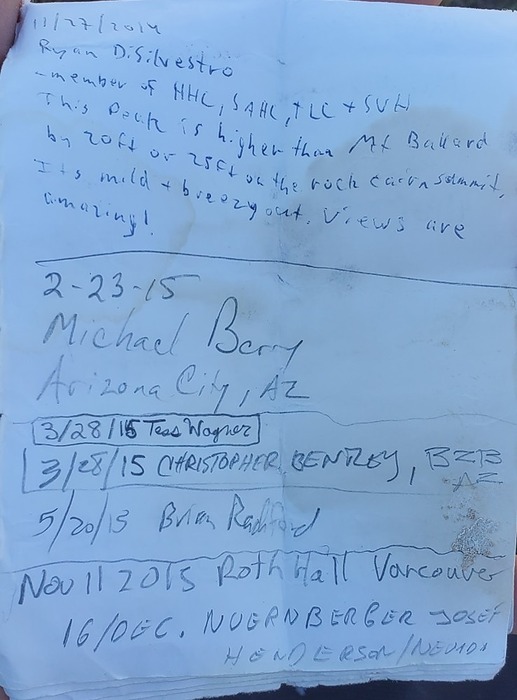 11/27/2014
Ryan DiSilvestro
-member of HHC, SAHC, TLC + SVH
This Peak is higher than Mt Ballard
by 20ft or 25ft on the rock cairn summit.
Its mild + breezy out. Views are
amazing!
2-23-15
Michael Berry
Arizona City, AZ
3/28/15 Tess Wagner
3/28/15 CHRISTOPHER BENTLEY, BZB
AZ
5/20/15 Brian Radford
Nov 11 2015 Roth Hall Vancouver
16/DEC. NUERNBERGER JOSEF
HENDERSON/NEVADA